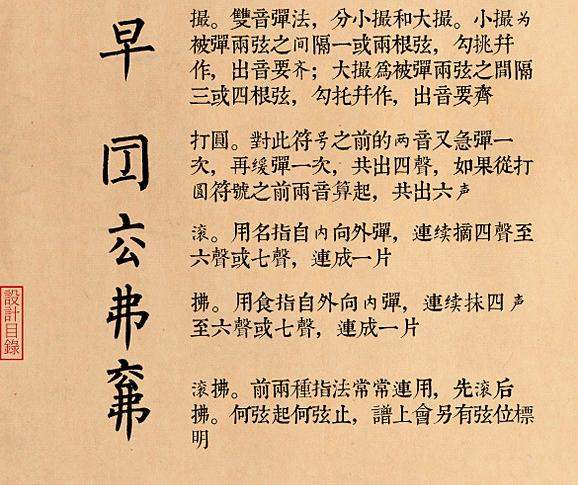 早
撮。雙音彈法，分小撮和大撮。小撮为
被彈兩弦之间隔一或兩根弦，勾挑幷
作，出音要齐；大撮爲被彈兩弦之間隔
三或四根弦，勾托幷作，出音要齊
打圓。對此符号之前的两音又急彈一
次，再缓彈一次，共出四聲，如果從打
圆符號之前兩音算起，共出六声
滚。用名指自内向外彈，連续摘四聲至
六聲或七聲，連成一片
拂。用食指自外向内彈，連续抹四声
至六聲或七聲，連成一片
弗
滚拂。前兩種指法常常連用，先滚后
拂。何弦起何弦止，譜上會另有弦位標
明
設計目錄